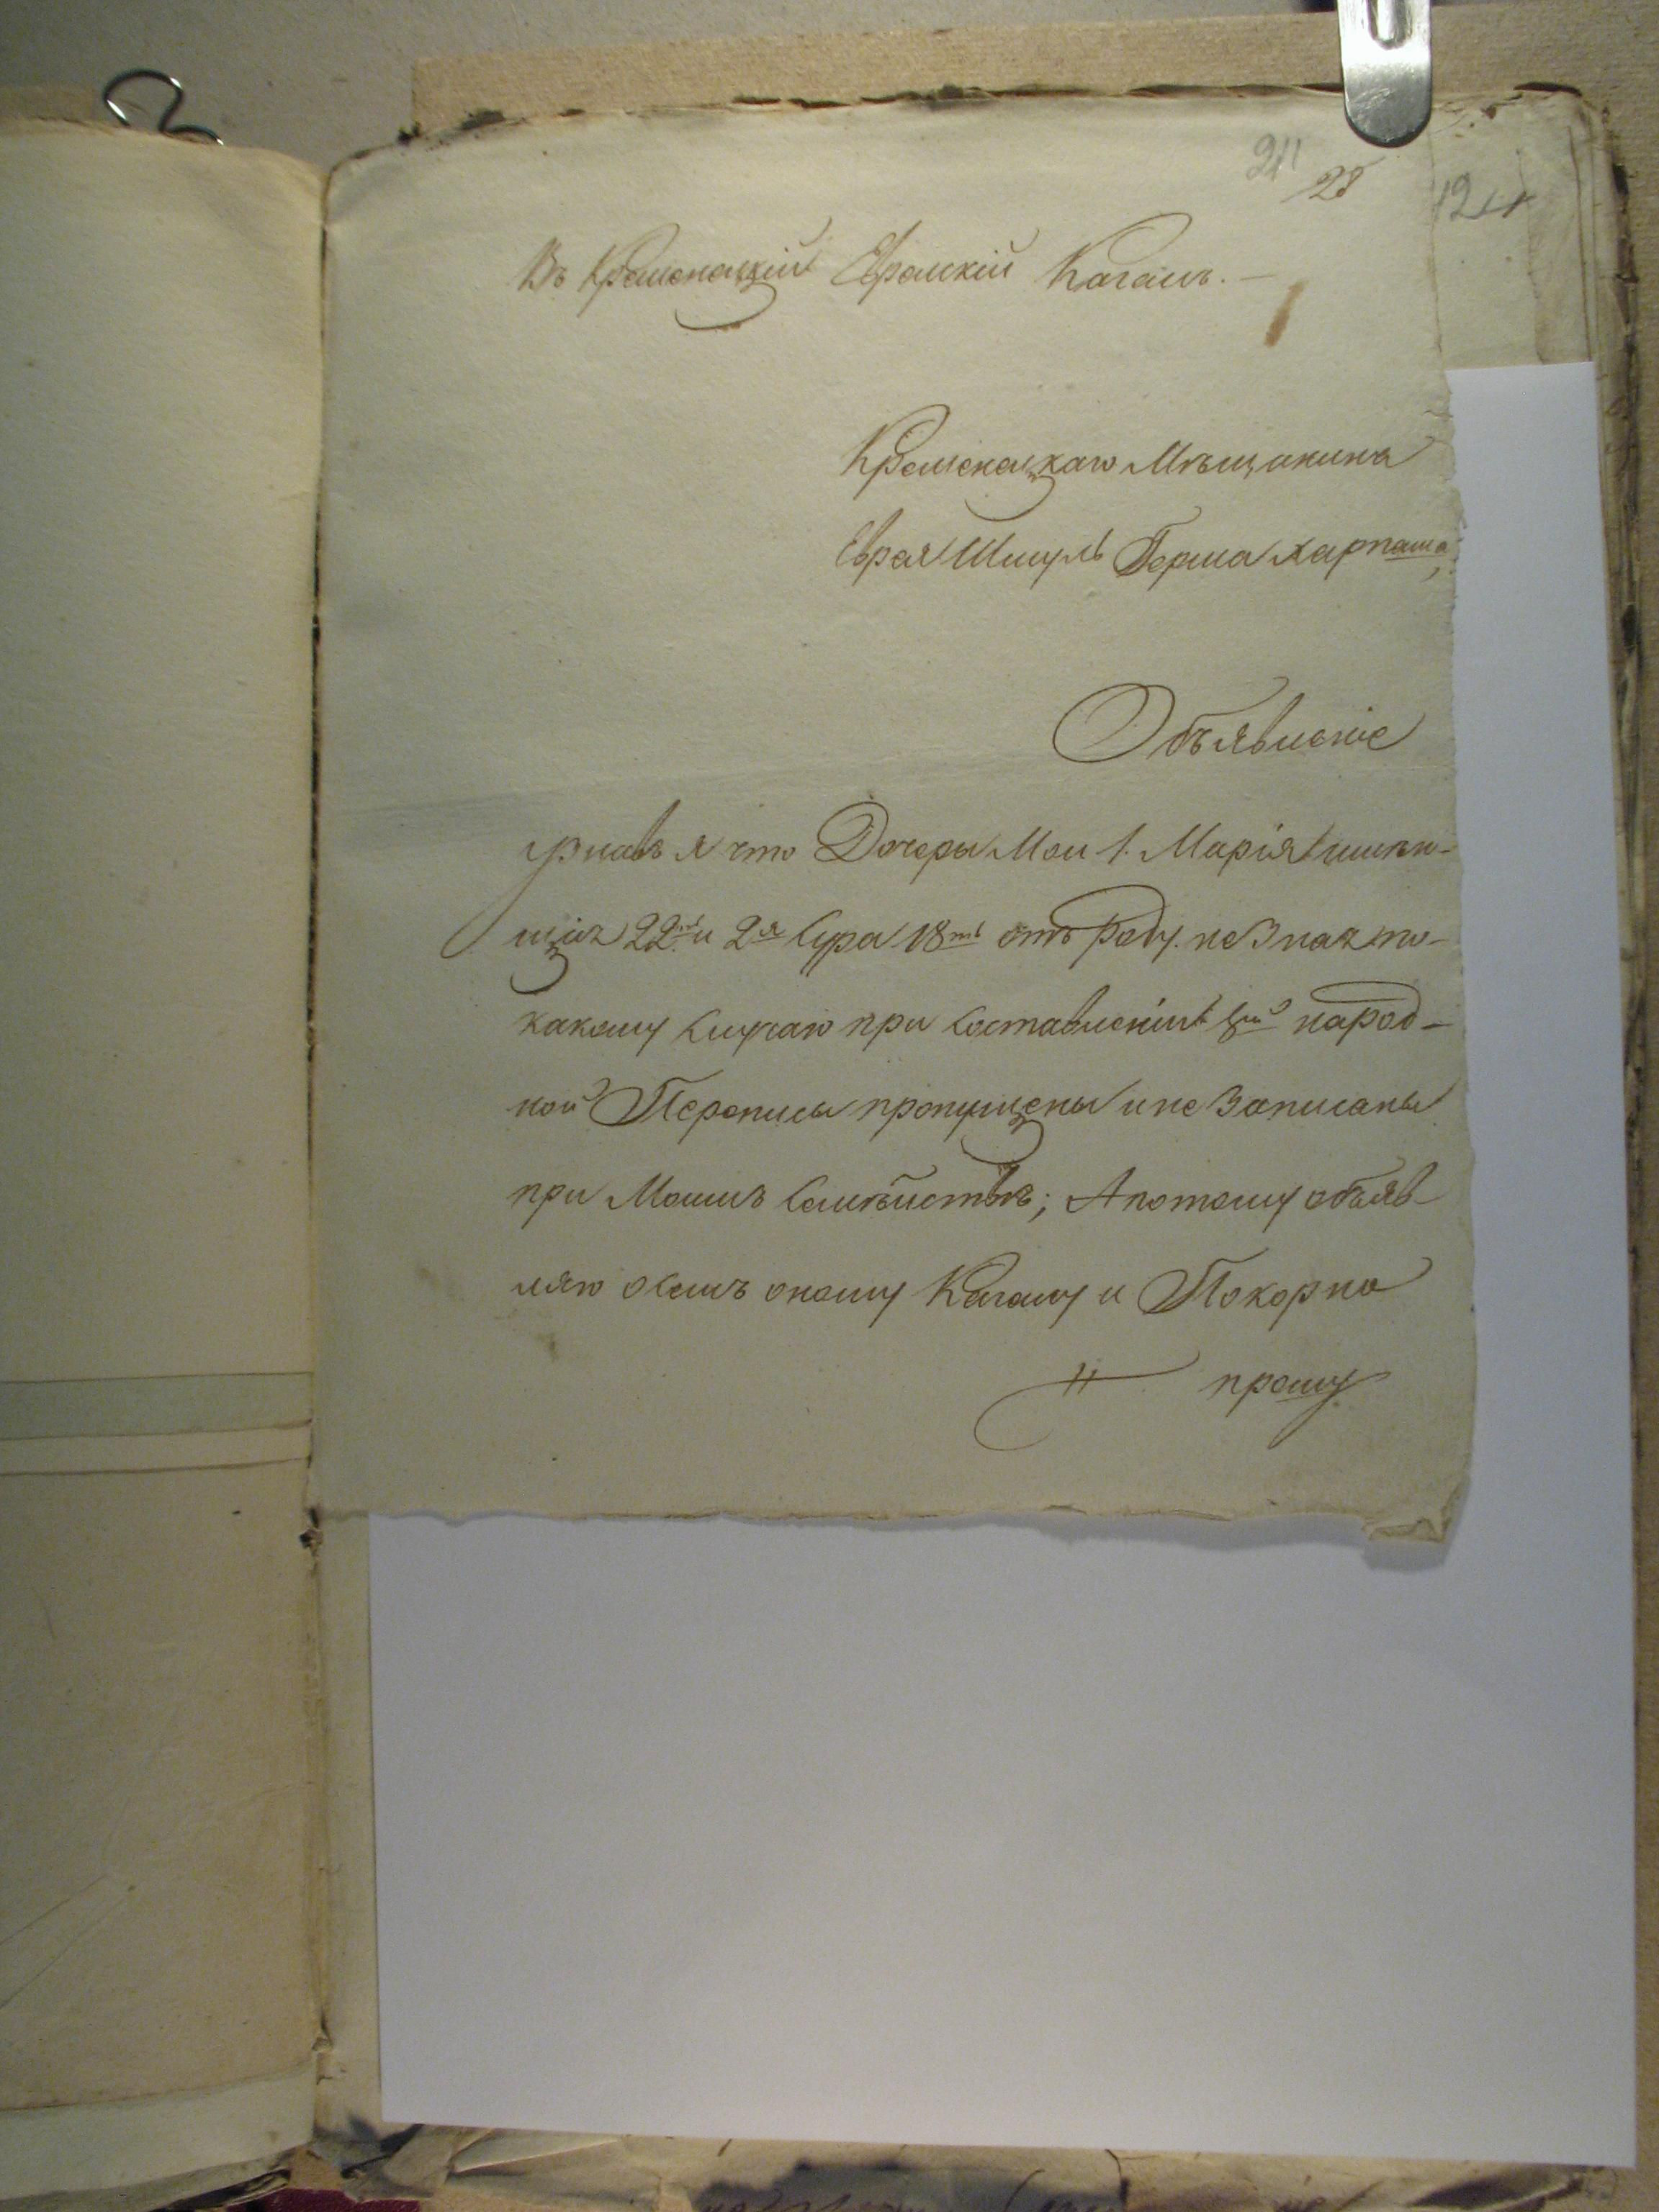 211
28
1211
Въ Кременецкій Еврейскій Кагалъ. —
Кременецкаго Мѣщанина
Еврея Шмуль Герша Харпаша,
Объявленіе
узнавъ я что Дочеры Мои 1. Марія имѣю-
щія 22ть и 2я Сура 18ть отъ роду. не Знаю по-
какому Случаю при Составленіи 8й народ-
ной Переписы пропущены и не Записаны
при Моемъ Семѣйствѣ; А потому объяв-
ляю о семъ оному Кагалу и Покорно
прошу